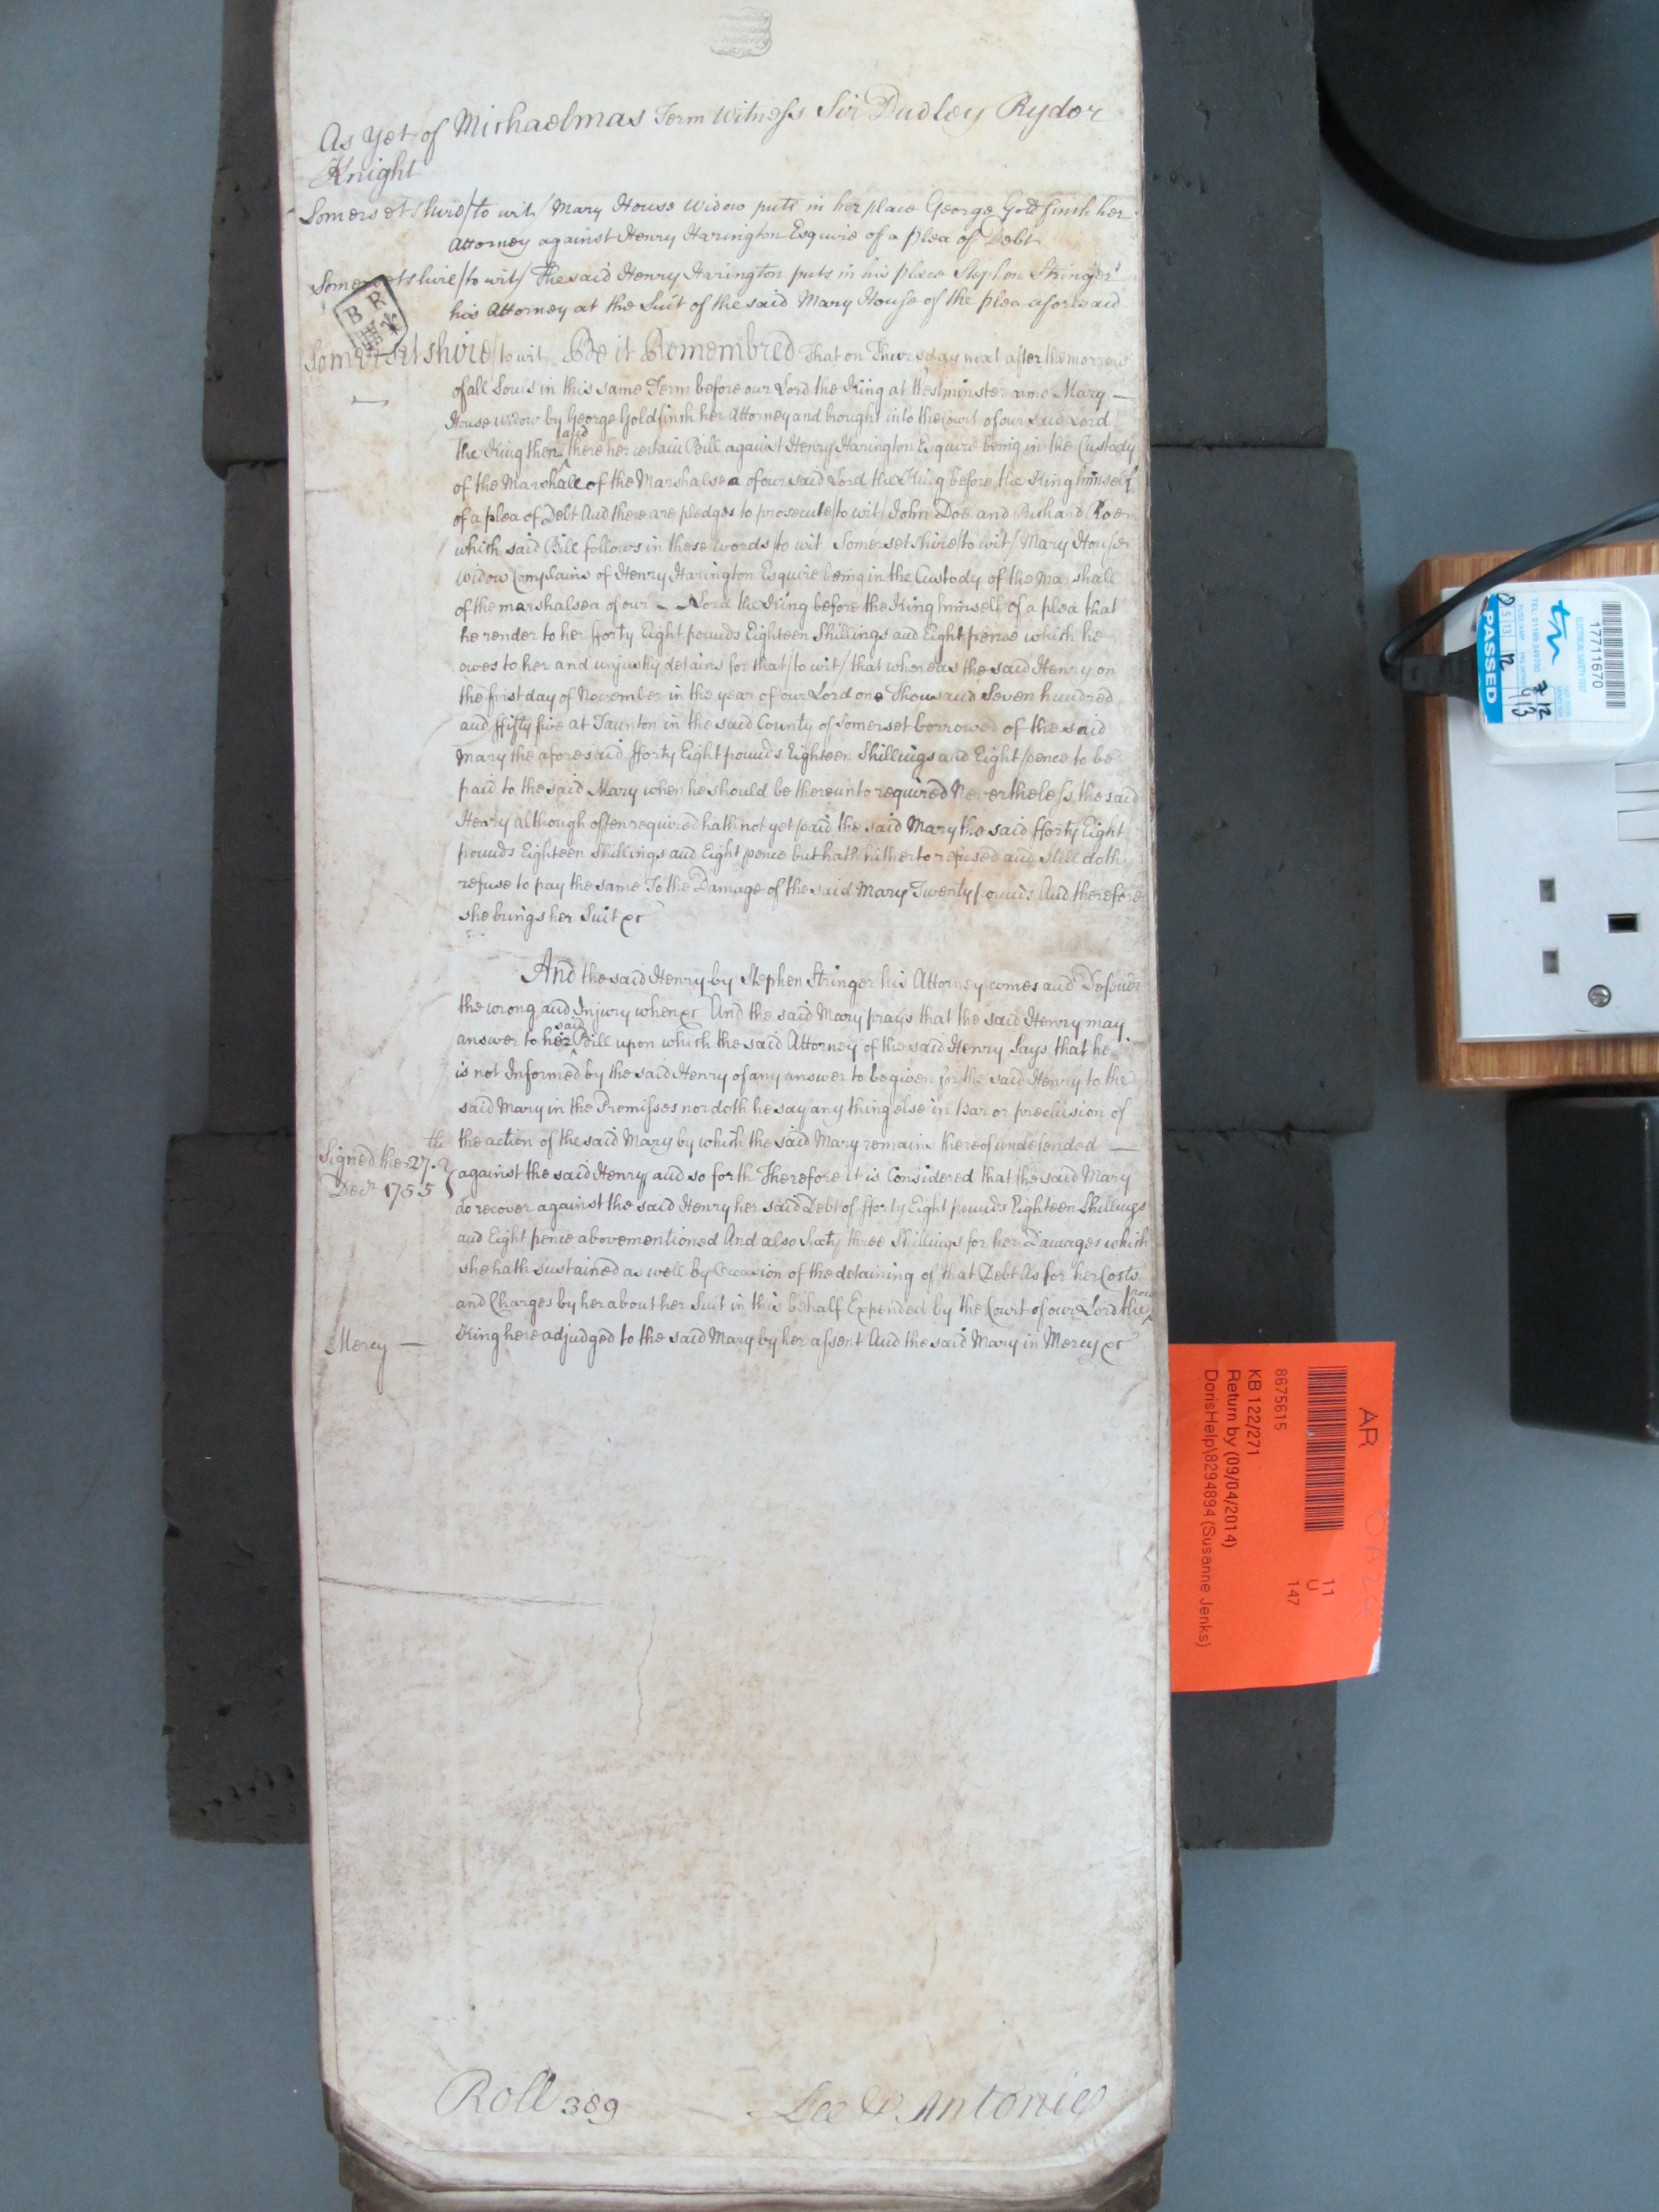 As yet of Michaelmas Term Witness Sir Dudley Ryder
Knight
Somersetshire/to wit/ Mary House Widow puts in her place George Goldfinch her
Attorney against Henry Harington Esquire of a plea of Debt
Somersetshire/to wit/ The said Henry Harington puts in his place Stephen Stringer
his Attorney at the Suit of the said Mary House of the plea aforesaid
B R
Somersetshire/to wit/ Be it Remembred That on Thursday next after the morrow
of all Souls in this same Term before our Lord the King at Westminster came Mary —
House widow by George Goldfinch her Attorney and brought into the Court of our said Lord
the King then and there her certain Bill against Henry Harington Esquire being in the Custody
of the Marshall of the Marshalsea of our said Lord the King before the King himself
of a plea of Debt And there are pledges to prosecute/to wit/ John Doe and Richard Roe
which said Bill follows in these words/to wit/ Somersetshire/to wit/ Mary House
widow Complains of Henry Harington Esquire being in the Custody of the Marshall
of the marshalsea of our Lord the King before the King himself of a plea that
he render to her fforty Eight pounds Eighteen Shillings and Eight pence which he
owes to her and unjustly detains for that/to wit/ that whereas the said Henry on
the first day of November in the year of our Lord one Thousand Seven hundred
and ffifty five at Taunton in the said County of Somerset borrowed of the said
Mary the aforesaid fforty Eight pounds Eighteen Shillings and Eight pence to be
paid to the said Mary when he should be thereunto required Nevertheless the said
Henry although often required hath not yet paid the said Mary the said fforty Eight
pounds Eighteen Shillings and Eight pence but hath hitherto refused and still doth
refuse to pay the same To the Damage of the said Mary Twenty pounds And therefore
she brings her Suit &c
And the said Henry by Stephen Stringer his Attorney comes and Defends
the wrong and Injury when &c And the said Mary prays that the said Henry may
answer to her said Bill upon which the said Attorney of the said Henry Says that he
is not Informed by the said Henry of any answer to be given for the said Henry to the
said Mary in the Premisses nor doth he say any thing else in Bar or preclusion of
the action of the said Mary by which the said Mary remains thereof undefended —
Signed the 27th
Decr 1755
against the said Henry and so forth Therefore it is Considered that the said Mary
do recover against the said Henry her said Debt of fforty Eight pounds Eighteen Shillings
and Eight pence abovementioned And also Sixty three Shillings for her Damages which
she hath sustained as well by Occasion of the detaining of that Debt As for her Costs
and Charges by her about her Suit in this behalf Expended by the Court of our Lord the now
Mercy — King here adjudged to the said Mary by her assent And the said Mary in Mercy &c
Roll 389
Lee & Antonie
AR
8675615
KB 122/271
Return by (09/04/2014)
DorisHelp\8294894 (Susanne Jenks)
11
U
147
17711670
PASSED